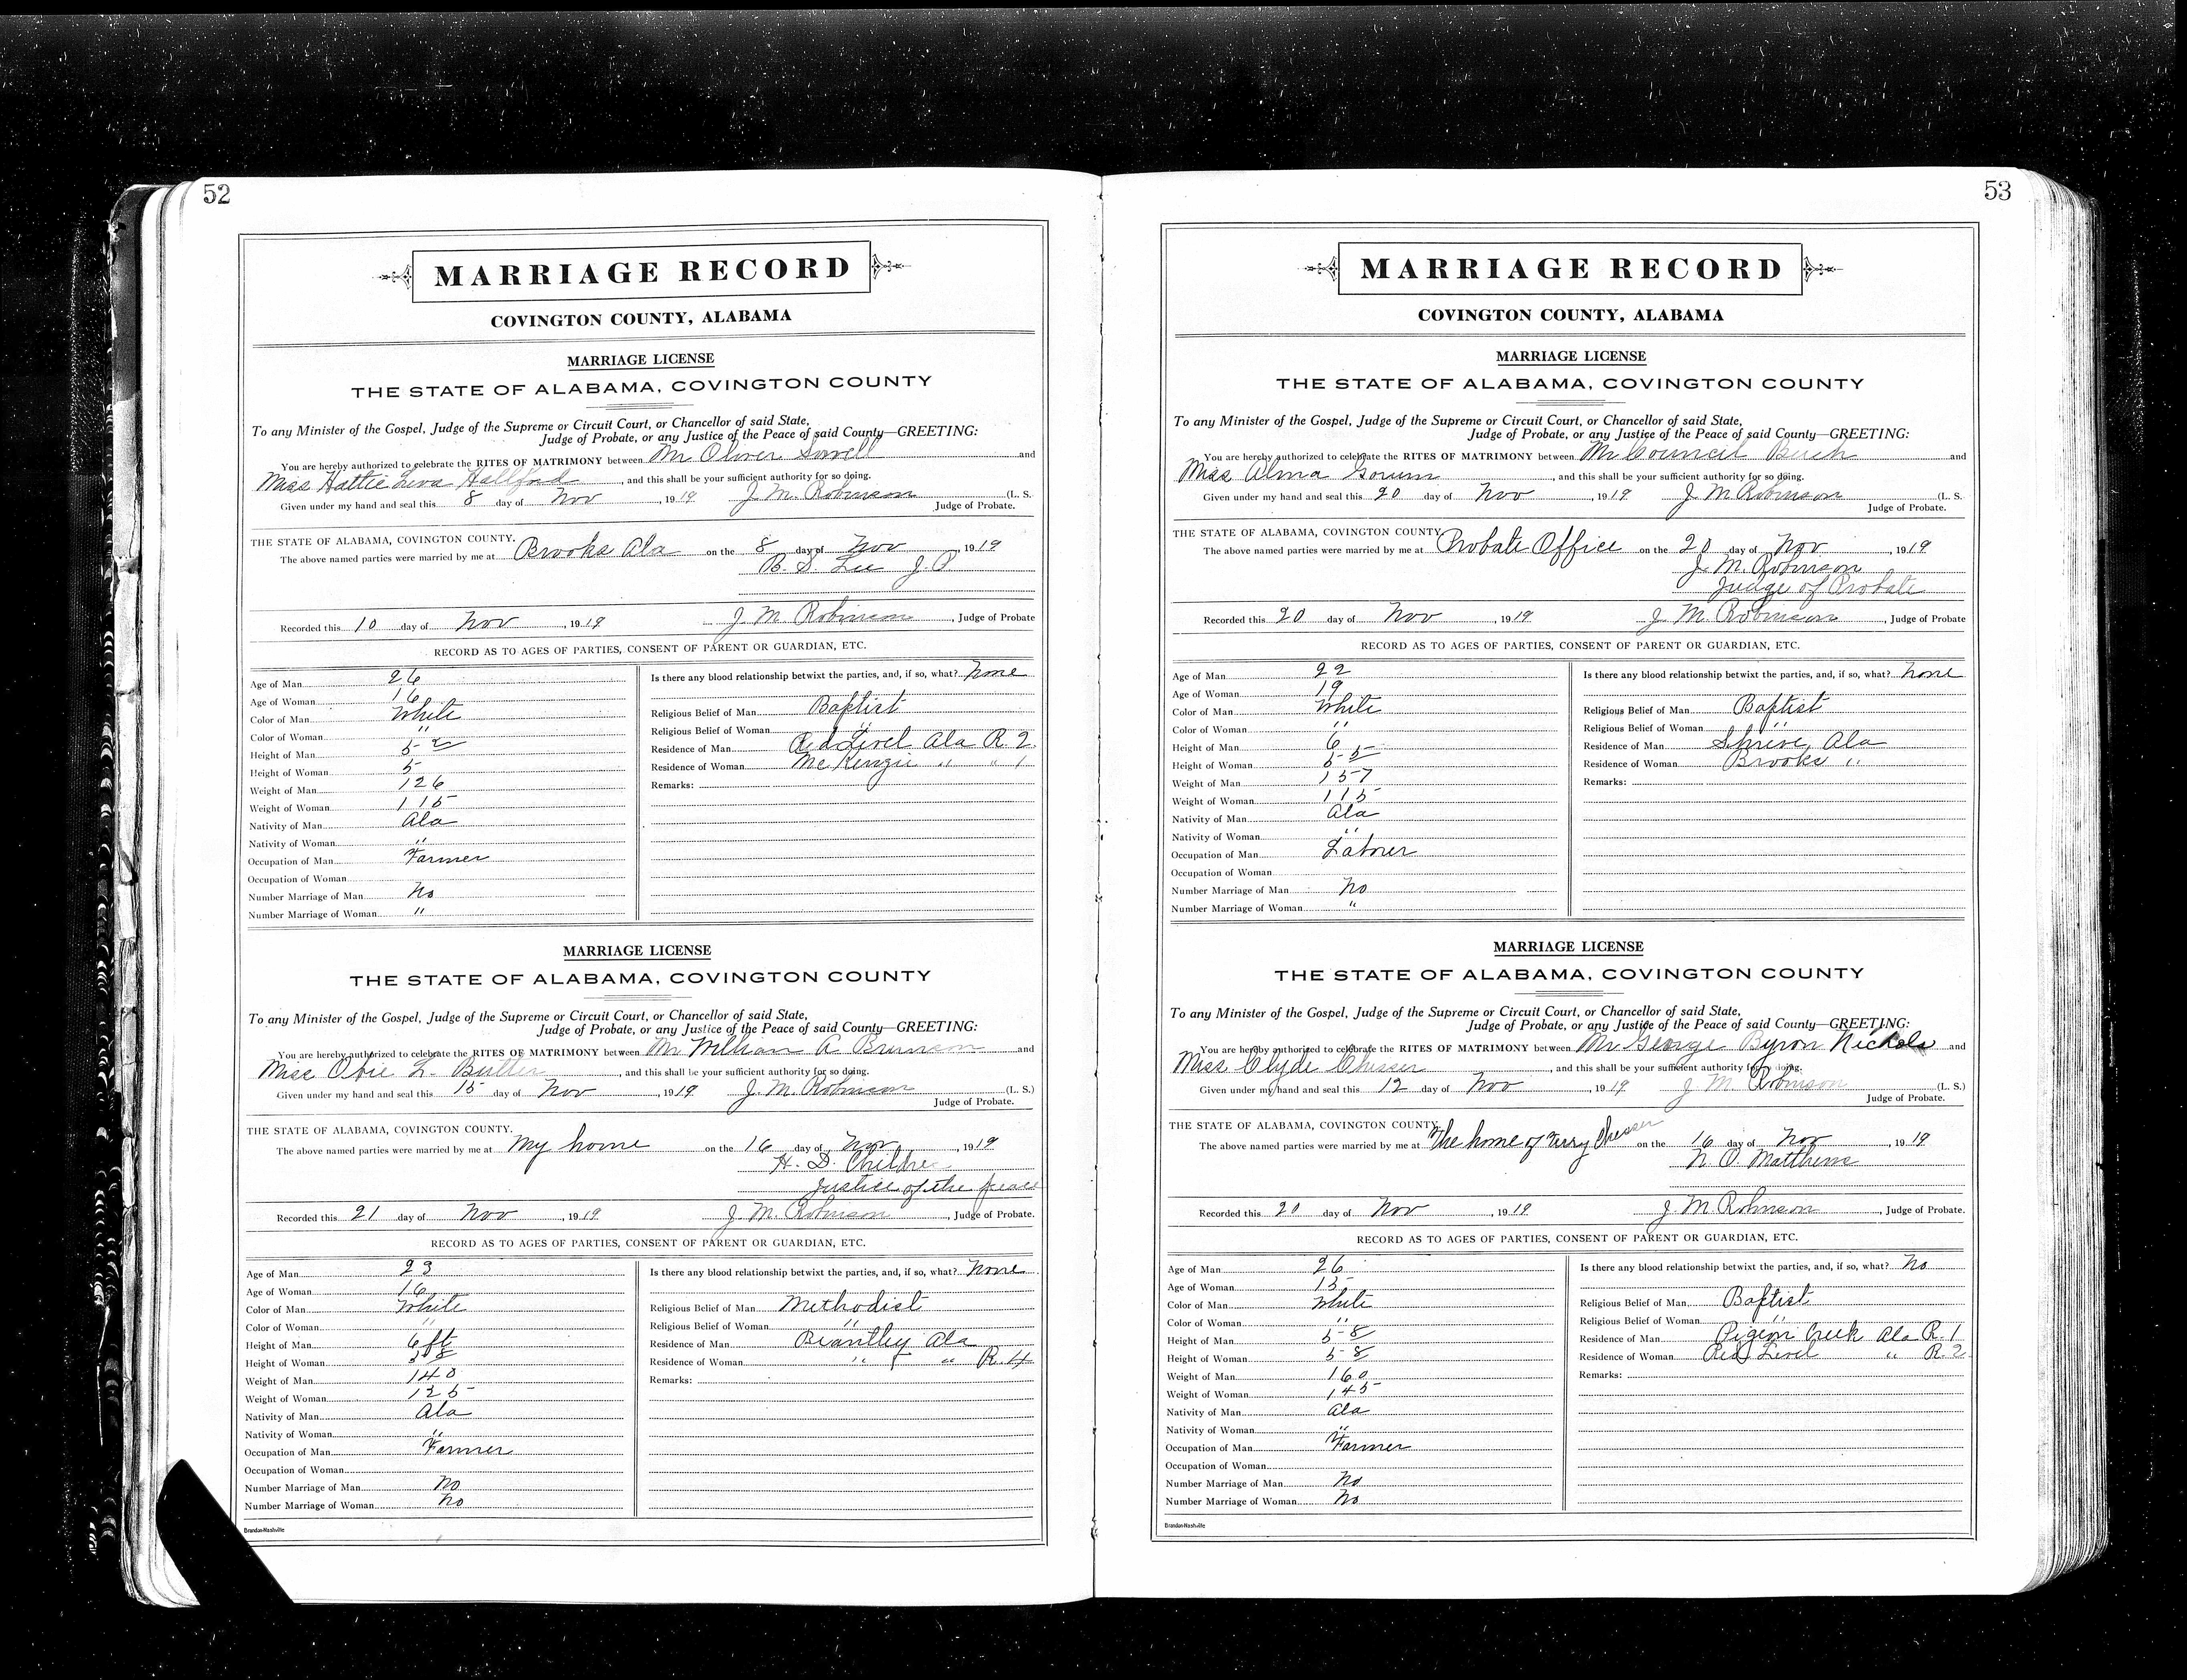 52
MARRIAGE RECORD
COVINGTON COUNTY, ALABAMA
MARRIAGE LICENSE
THE STATE OF ALABAMA, COVINGTON COUNTY
To any Minister of the Gospel, Judge of the Supreme or Circuit Court, or Chancellor of said State,
Judge of Probate, or any Justice of the Peace of said County—GREETING:
You are hereby authorized to celebrate the RITES OF MATRIMONY between Mr Oliver Sowell and
Miss Hattie Leva Hallford, and this shall be your sufficient authority for so doing.
Given under my hand and seal this 8 day of Nov, 1919 J. M. Robinson (L. S.
Judge of Probate.
THE STATE OF ALABAMA, COVINGTON COUNTY.
The above named parties were married by me at Brooks Ala on the 8 day of Nov, 1919
B. S. Lee J. P
Recorded this 10 day of Nov, 1919 J. M. Robinson, Judge of Probate
RECORD AS TO AGES OF PARTIES, CONSENT OF PARENT OR GUARDIAN, ETC.
Age of Man 26
Age of Woman 16
Color of Man White
Color of Woman "
Height of Man 5-2
Height of Woman 5-
Weight of Man 126
Weight of Woman 115
Nativity of Man Ala
Nativity of Woman "
Occupation of Man Farmer
Occupation of Woman
Number Marriage of Man No
Number Marriage of Woman "
Is there any blood relationship betwixt the parties, and, if so, what? None
Religious Belief of Man Baptist
Religious Belief of Woman "
Residence of Man Red Level Ala R. 2.
Residence of Woman McKenzie " " 1
Remarks:
MARRIAGE LICENSE
THE STATE OF ALABAMA, COVINGTON COUNTY
To any Minister of the Gospel, Judge of the Supreme or Circuit Court, or Chancellor of said State,
Judge of Probate, or any Justice of the Peace of said County—GREETING:
You are hereby authorized to celebrate the RITES OF MATRIMONY between Mr William A Brunson and
Miss Obie L. Butler, and this shall be your sufficient authority for so doing.
Given under my hand and seal this 15 day of Nov, 1919 J. M. Robinson (L. S.)
Judge of Probate.
THE STATE OF ALABAMA, COVINGTON COUNTY.
The above named parties were married by me at My home on the 16 day of Nov, 1919
H. D. Childre
Justice of the peace
Recorded this 21 day of Nov, 1919 J. M. Robinson, Judge of Probate.
RECORD AS TO AGES OF PARTIES, CONSENT OF PARENT OR GUARDIAN, ETC.
Age of Man 23
Age of Woman 16
Color of Man White
Color of Woman "
Height of Man 6 ft
Height of Woman 5 8
Weight of Man 140
Weight of Woman 125
Nativity of Man Ala
Nativity of Woman "
Occupation of Man Farmer
Occupation of Woman
Number Marriage of Man No
Number Marriage of Woman No
Is there any blood relationship betwixt the parties, and, if so, what? None
Religious Belief of Man Methodist
Religious Belief of Woman "
Residence of Man Brantley Ala
Residence of Woman " " R. 4
Remarks:
Brandon-Nashville
53
MARRIAGE RECORD
COVINGTON COUNTY, ALABAMA
MARRIAGE LICENSE
THE STATE OF ALABAMA, COVINGTON COUNTY
To any Minister of the Gospel, Judge of the Supreme or Circuit Court, or Chancellor of said State,
Judge of Probate, or any Justice of the Peace of said County—GREETING:
You are hereby authorized to celebrate the RITES OF MATRIMONY between Mr Council Bush and
Miss Alma Gorum, and this shall be your sufficient authority for so doing.
Given under my hand and seal this 20 day of Nov, 1919 J. M. Robinson (L. S.
Judge of Probate.
THE STATE OF ALABAMA, COVINGTON COUNTY
The above named parties were married by me at Probate Office on the 20 day of Nov, 1919
J. M. Robinson
Judge of Probate
Recorded this 20 day of Nov, 1919 J. M. Robinson, Judge of Probate
RECORD AS TO AGES OF PARTIES, CONSENT OF PARENT OR GUARDIAN, ETC.
Age of Man 22
Age of Woman 19
Color of Man White
Color of Woman "
Height of Man 6
Height of Woman 5-5
Weight of Man 157
Weight of Woman 115
Nativity of Man Ala
Nativity of Woman "
Occupation of Man Labrer
Occupation of Woman
Number Marriage of Man No
Number Marriage of Woman "
Is there any blood relationship betwixt the parties, and, if so, what? None
Religious Belief of Man Baptist
Religious Belief of Woman "
Residence of Man Shrive, Ala
Residence of Woman Brooks "
Remarks:
MARRIAGE LICENSE
THE STATE OF ALABAMA, COVINGTON COUNTY
To any Minister of the Gospel, Judge of the Supreme or Circuit Court, or Chancellor of said State,
Judge of Probate, or any Justice of the Peace of said County—GREETING:
You are hereby authorized to celebrate the RITES OF MATRIMONY between Mr George Byron Nichols and
Miss Clyde Chesser, and this shall be your sufficient authority for so doing.
Given under my hand and seal this 12 day of Nov, 1919 J. M. Robinson (L. S.)
Judge of Probate.
THE STATE OF ALABAMA, COVINGTON COUNTY.
The above named parties were married by me at The home of Chesser on the 16 day of Nov, 1919
N. O. Matthews
Recorded this 20 day of Nov, 1919 J. M. Robinson, Judge of Probate.
RECORD AS TO AGES OF PARTIES, CONSENT OF PARENT OR GUARDIAN, ETC.
Age of Man 26
Age of Woman 15
Color of Man White
Color of Woman "
Height of Man 5-8
Height of Woman 5 8
Weight of Man 160
Weight of Woman 145
Nativity of Man Ala
Nativity of Woman "
Occupation of Man Farmer
Occupation of Woman
Number Marriage of Man No
Number Marriage of Woman No
Is there any blood relationship betwixt the parties, and, if so, what? No
Religious Belief of Man Baptist
Religious Belief of Woman "
Residence of Man Pigeon Creek Ala R. 1
Residence of Woman Red Level " R. 2
Remarks:
Brandon-Nashville